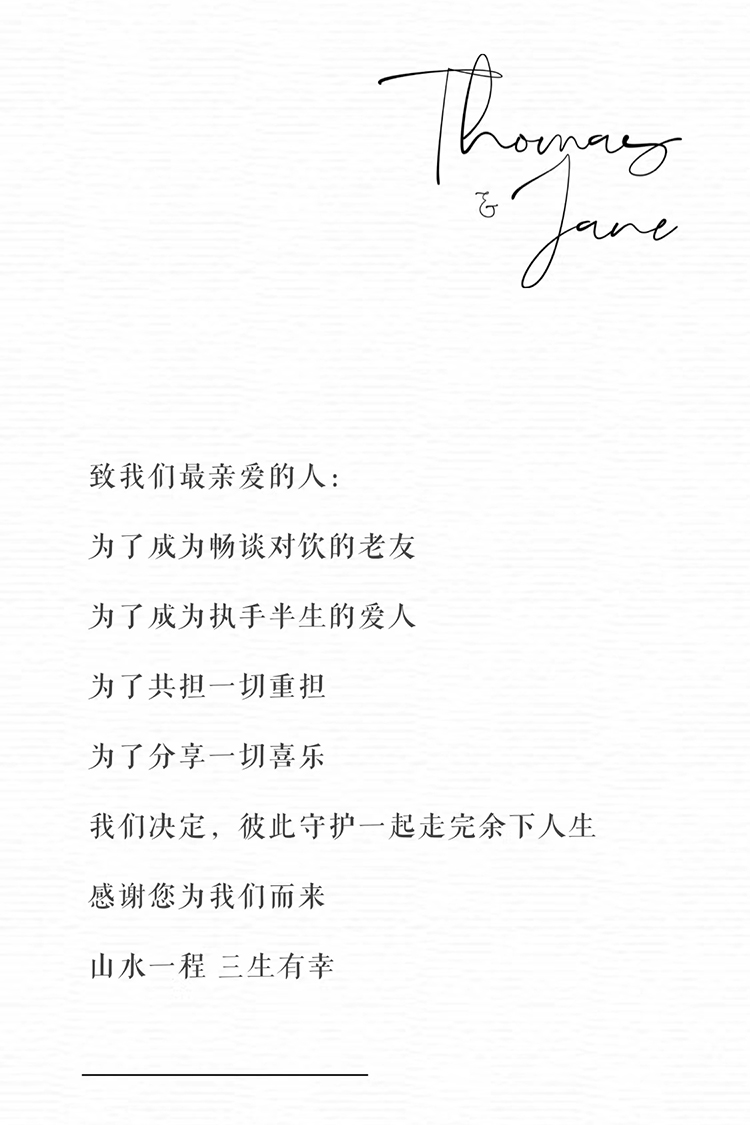 Thomas
&
Jane
致我们最亲爱的人：
为了成为畅谈对饮的老友
为了成为执手半生的爱人
为了共担一切重担
为了分享一切喜乐
我们决定，彼此守护一起走完余下人生
感谢您为我们而来
山水一程 三生有幸